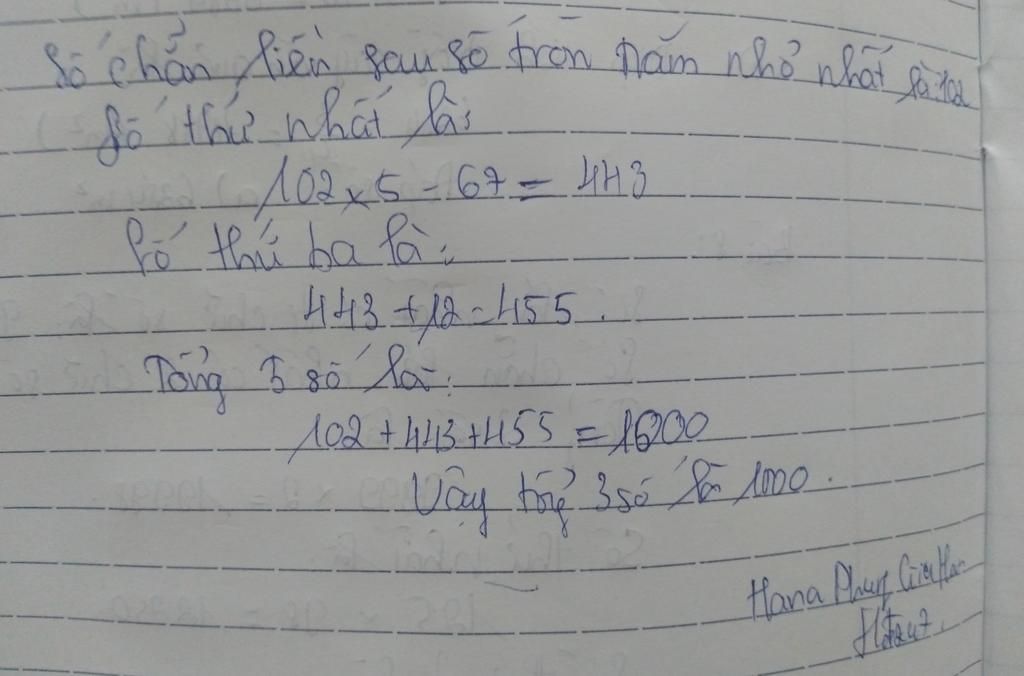 Số chẵn liền sau số tròn trăm nhỏ nhất là: 102
Số thứ nhất là:
102 x 5 - 67 = 443
Số thứ ba là:
443 + 12 = 455.
Tổng 3 số là:
102 + 443 + 455 = 1000
Vậy tổng 3 số là 1000.
Hana